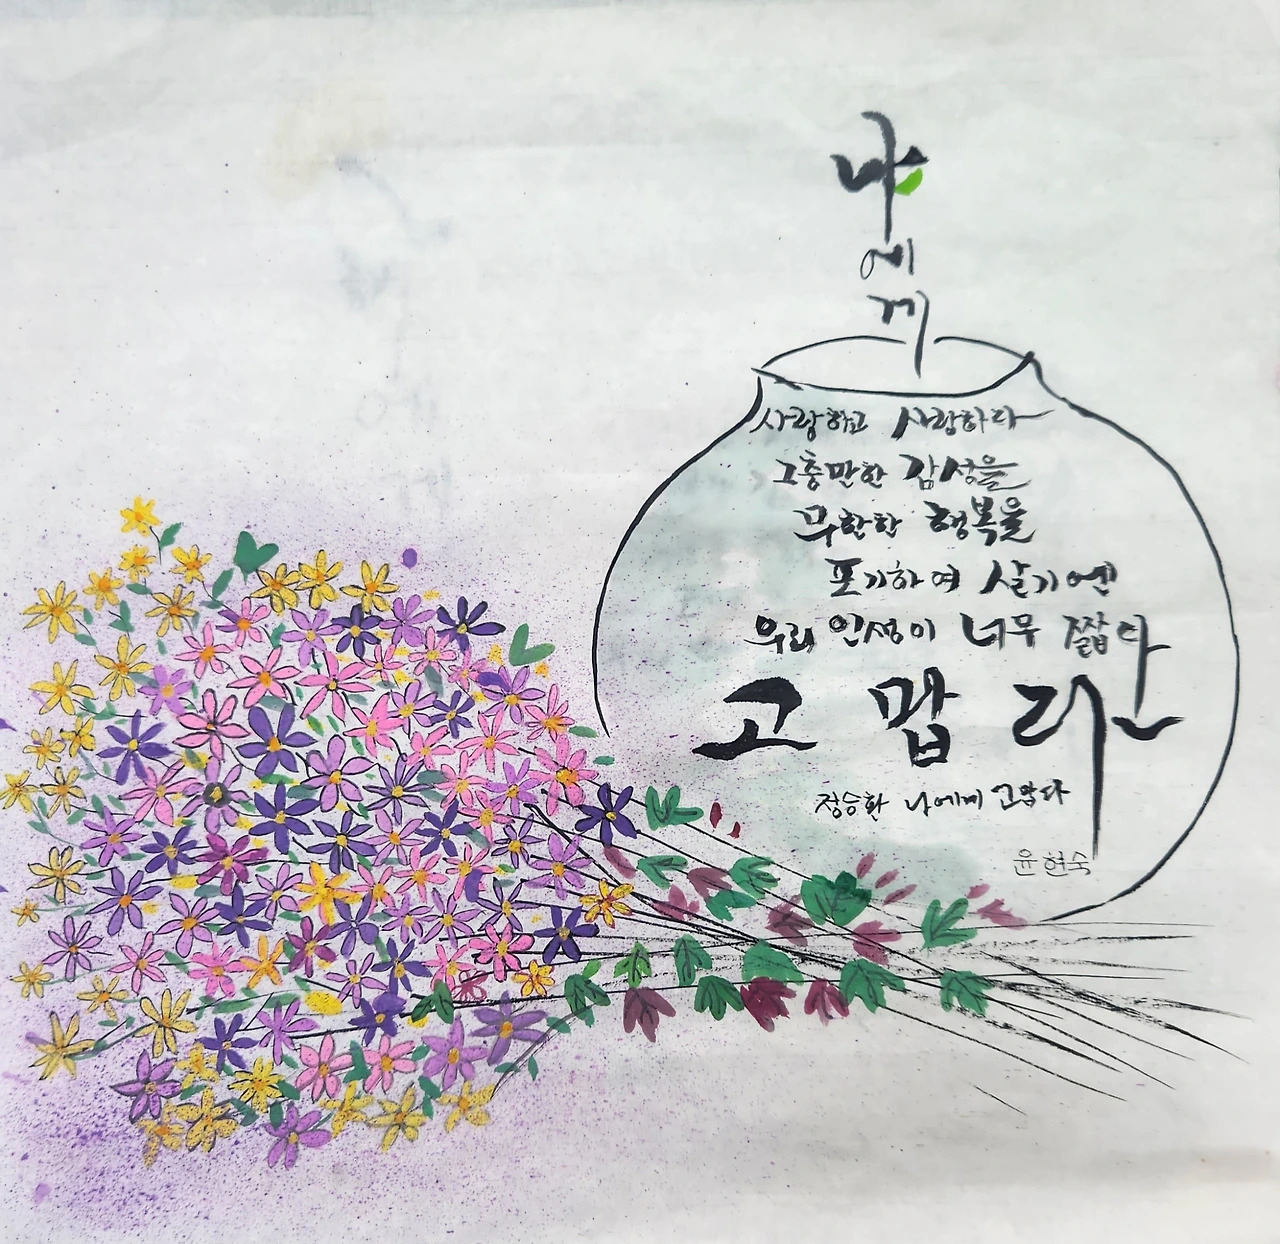 나
에
게
사랑하고 사랑하라
그충만한 감성을
무한한 행복을
포기하여 살기엔
우리 인생이 너무 짧다
고맙다
정승환 나에게 고맙다
윤현숙